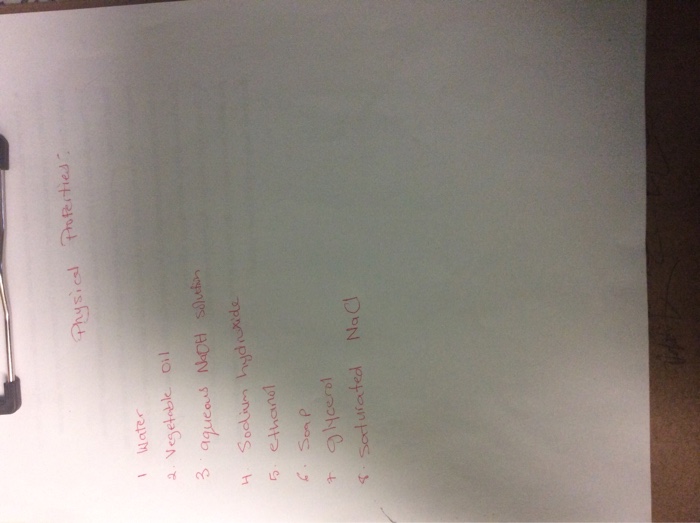 Physical Properties:
1 Water
2. Vegetable oil
3. aqueous NaOH solution
4 Sodium hydroxide
5. ethanol
6. Soap
7 glycerol
8. Saturated NaCl